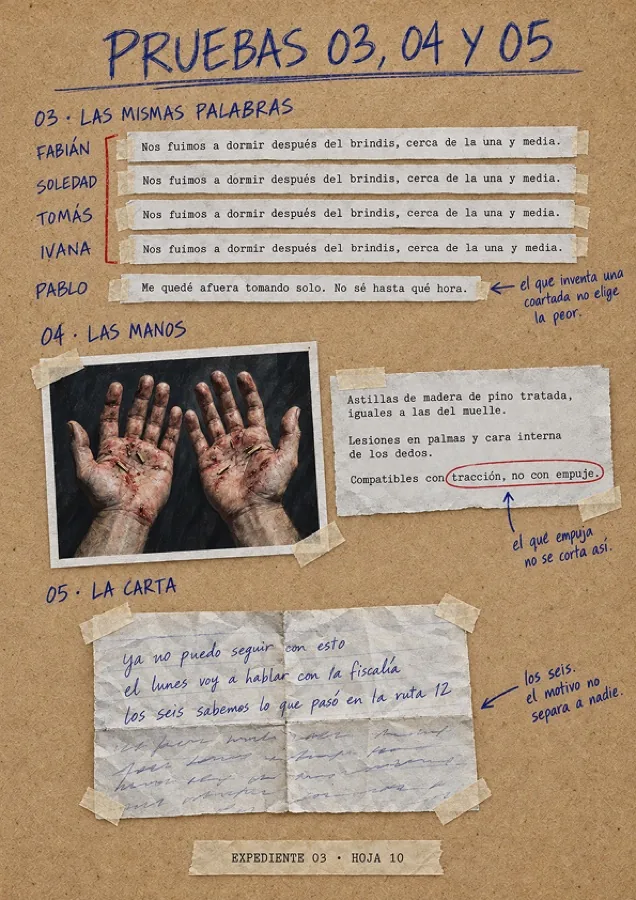 PRUEBAS 03, 04 Y 05
03 · LAS MISMAS PALABRAS
FABIÁN
Nos fuimos a dormir después del brindis, cerca de la una y media.
SOLEDAD
Nos fuimos a dormir después del brindis, cerca de la una y media.
TOMÁS
Nos fuimos a dormir después del brindis, cerca de la una y media.
IVANA
Nos fuimos a dormir después del brindis, cerca de la una y media.
PABLO
Me quedé afuera tomando solo. No sé hasta qué hora.
el que inventa una
coartada no elige
la peor.
04 · LAS MANOS
Astillas de madera de pino tratada,
iguales a las del muelle.
Lesiones en palmas y cara interna
de los dedos.
Compatibles con tracción, no con empuje.
el que empuja
no se corta así.
05 · LA CARTA
ya no puedo seguir con esto
el lunes voy a hablar con la fiscalía
los seis sabemos lo que pasó en la ruta 12
los seis.
el motivo no
separa a nadie.
EXPEDIENTE 03 · HOJA 10